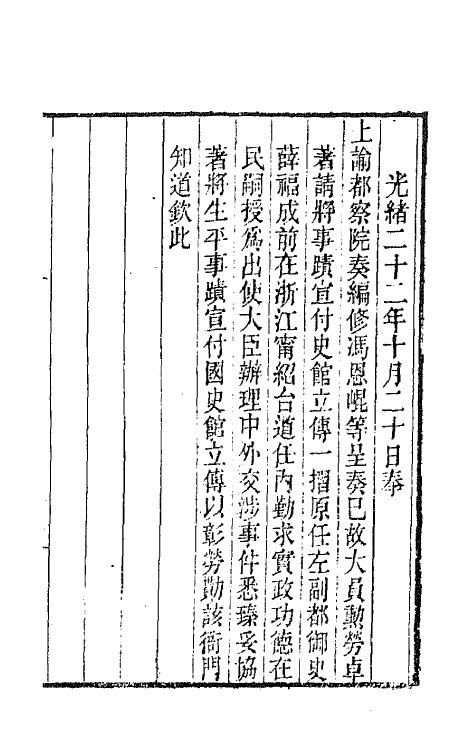 光緒二十二年十月二十日奉
上諭都察院奏編修馮恩崐等呈奏已故大員勳勞卓
著請將事蹟宣付史館立傳一摺原任左副都御史
薛福成前在浙江甯紹台道任內勤求實政功德在
民嗣授爲出使大臣辦理中外交涉事件悉臻妥協
著將生平事蹟宣付國史館立傳以彰勞勩該衙門
知道欽此